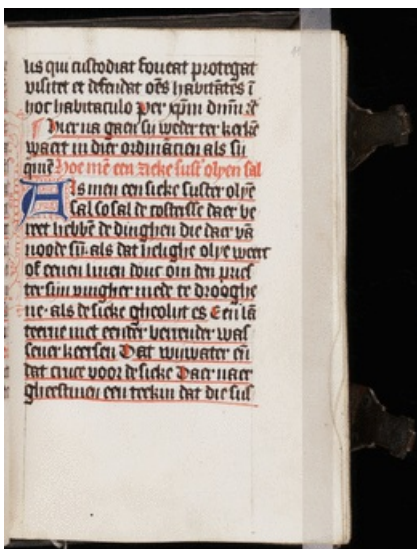 lis qui custodiat foveat protegat
visitet et defendat oēs habitātes ī
hoc habitaculo Per xp̄m dn̄m
Hier na gaen sij weder ter kerkē
waert in dier ordinācien als sij
Hoe mē een zieke sust olyen sal
Als men een sieke suster olyē
sal so sal de costersse daer be
reet hebbē de dinghen die daer vā
noode sijn als dat helighe olye
of eenen lijnen douc om den pries
ter sijn vingher mede te drooghe
ne als de sieke gheolijt es Een lā
teerne met eender berrender was
sener keersen Dat wijwater eñ
dat cruce voor de sieke Daer naer
een teekin dat die sus